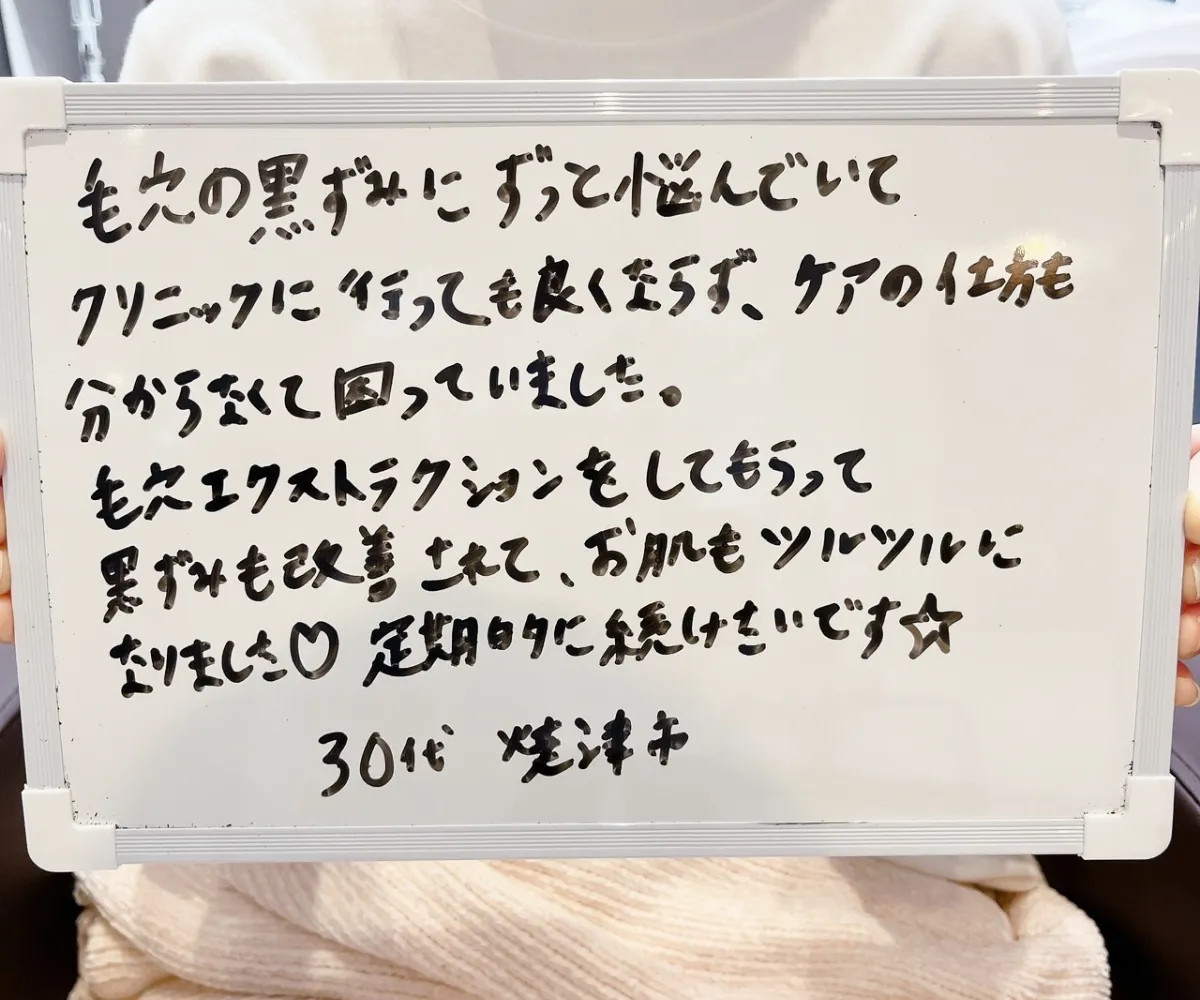 毛穴の黒ずみにずっと悩んでいて
クリニックに行っても良くならず、ケアの仕方も
分からなくて困っていました。
毛穴エクストラクションをしてもらって
黒ずみも改善されて、お肌もツルツルに
なりました♡ 定期的に続けたいです☆
30代 焼津市